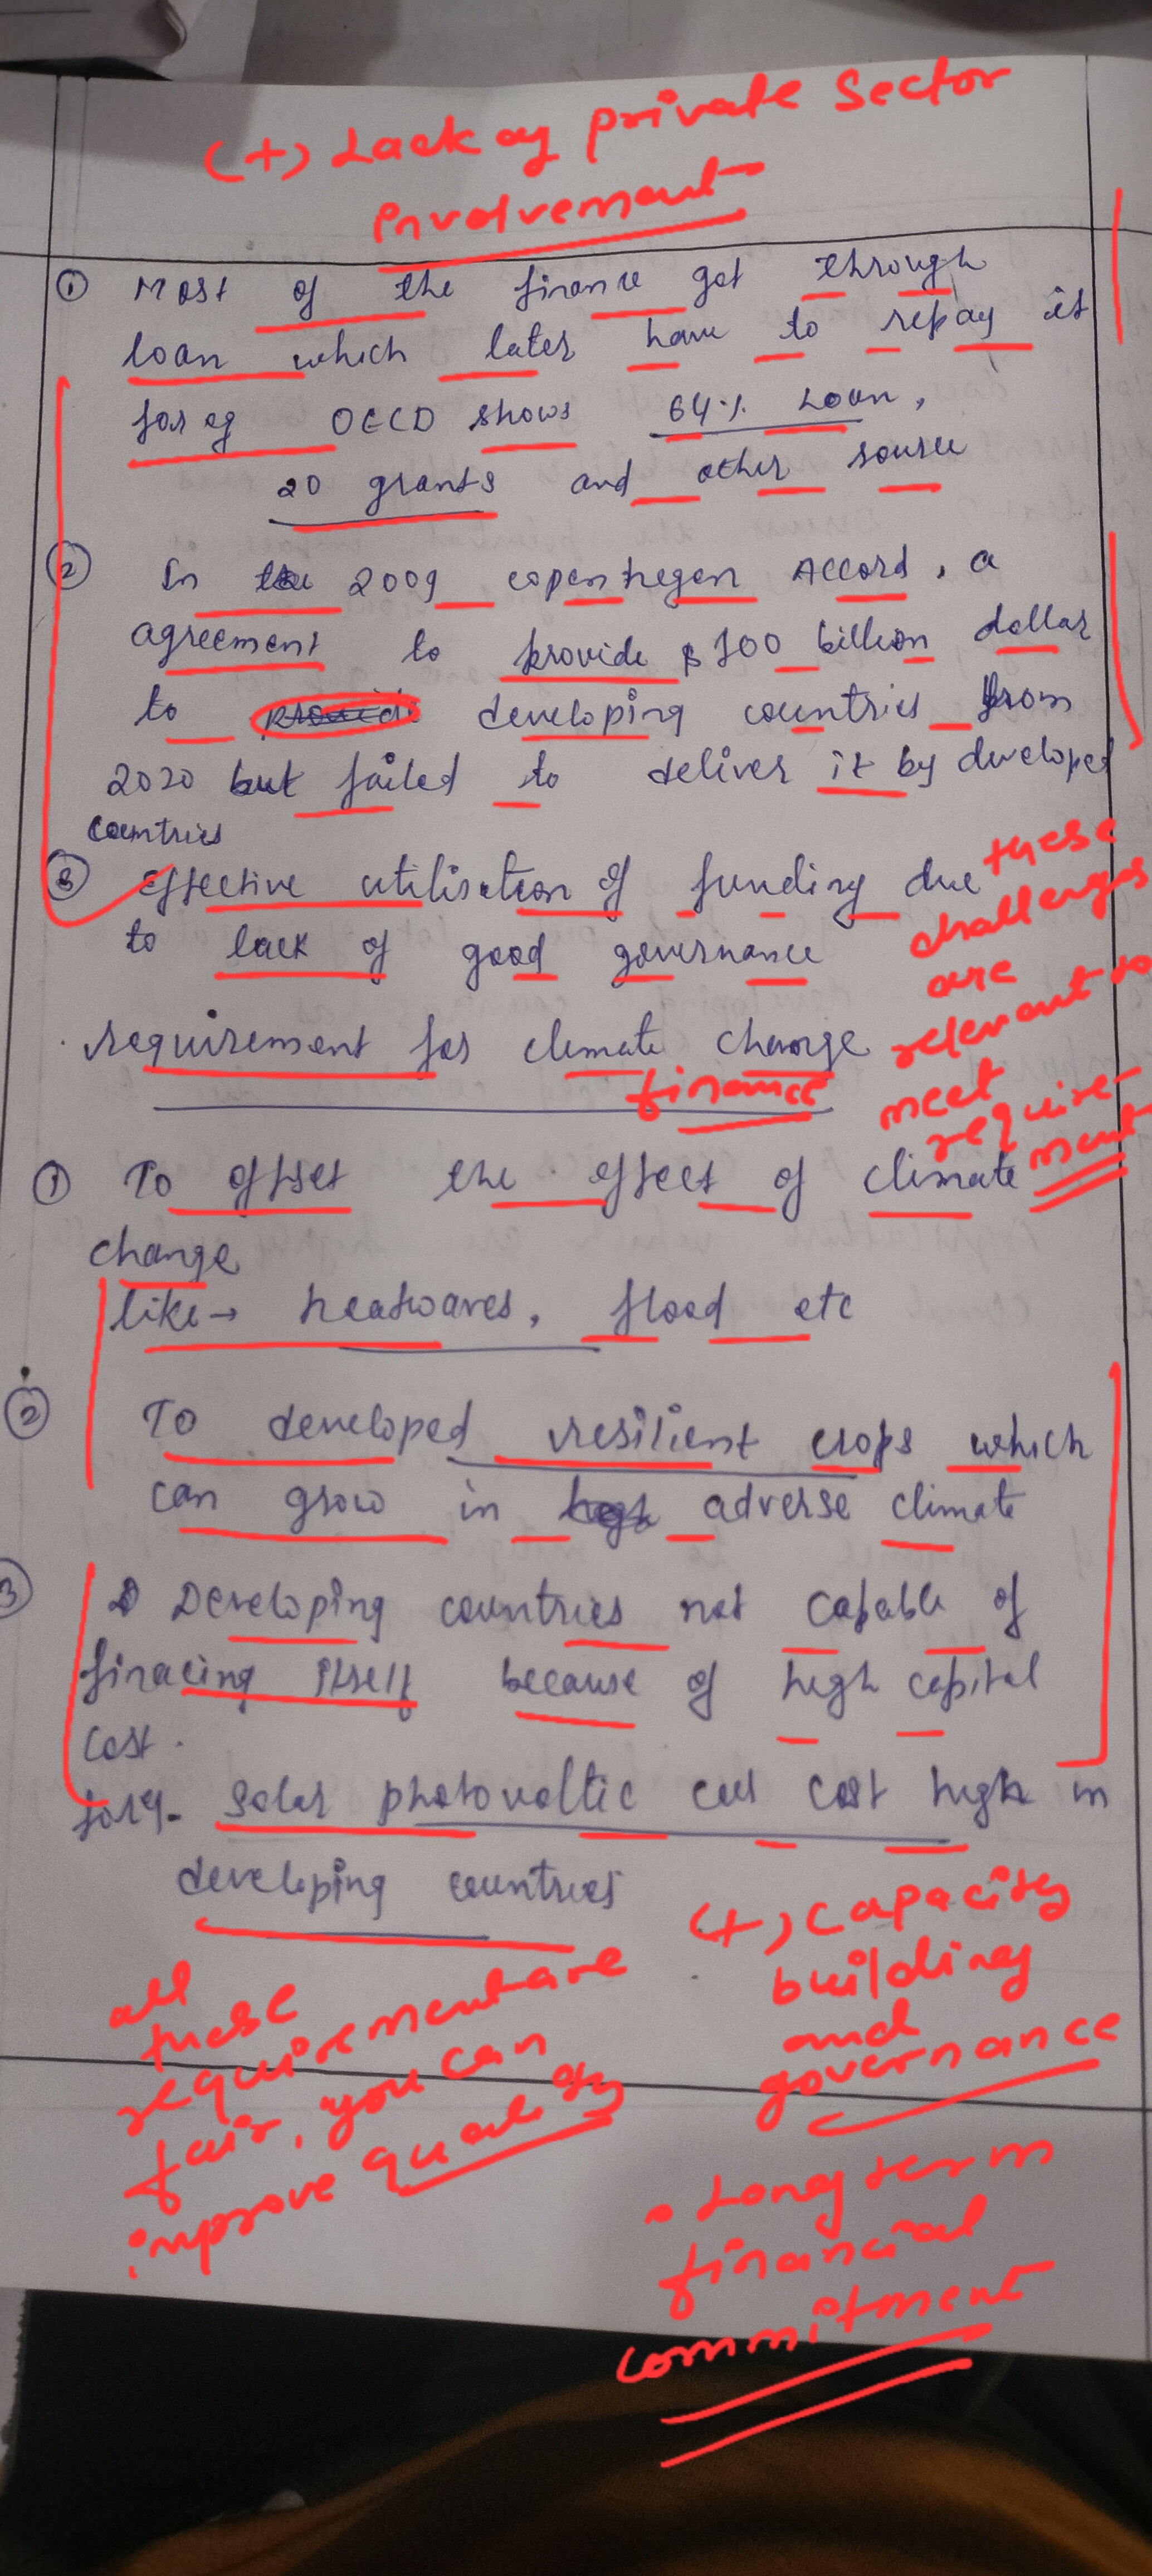 (+) Lack of private sector
involvement
① Most of the finance got through
loan which later have to repay it
for eg OECD shows 64% Loan,
20 grants and other source
② In the 2009 copenhegen Accord, a
agreement to provide $ 100 billion dollar
to provide developing countries from
2020 but failed to deliver it by developed
countries
③ Effective utilisation of funding due
to lack of good governance
these
challenges
are
relevant to
meet
require-
ment
requirement for climate change
finance
① To offset the effect of climate
change
like → heatwaves, flood etc
② To developed resilient crops which
can grow in high adverse climate
③ Developing countries not capable of
finacing itself because of high capital
cost.
for eg- solar photovoltic cell cost high in
developing countries
all
these
requirement are
fair, you can
improve quality
(+) capacity
building
and
governance
• Long term
financial
commitment